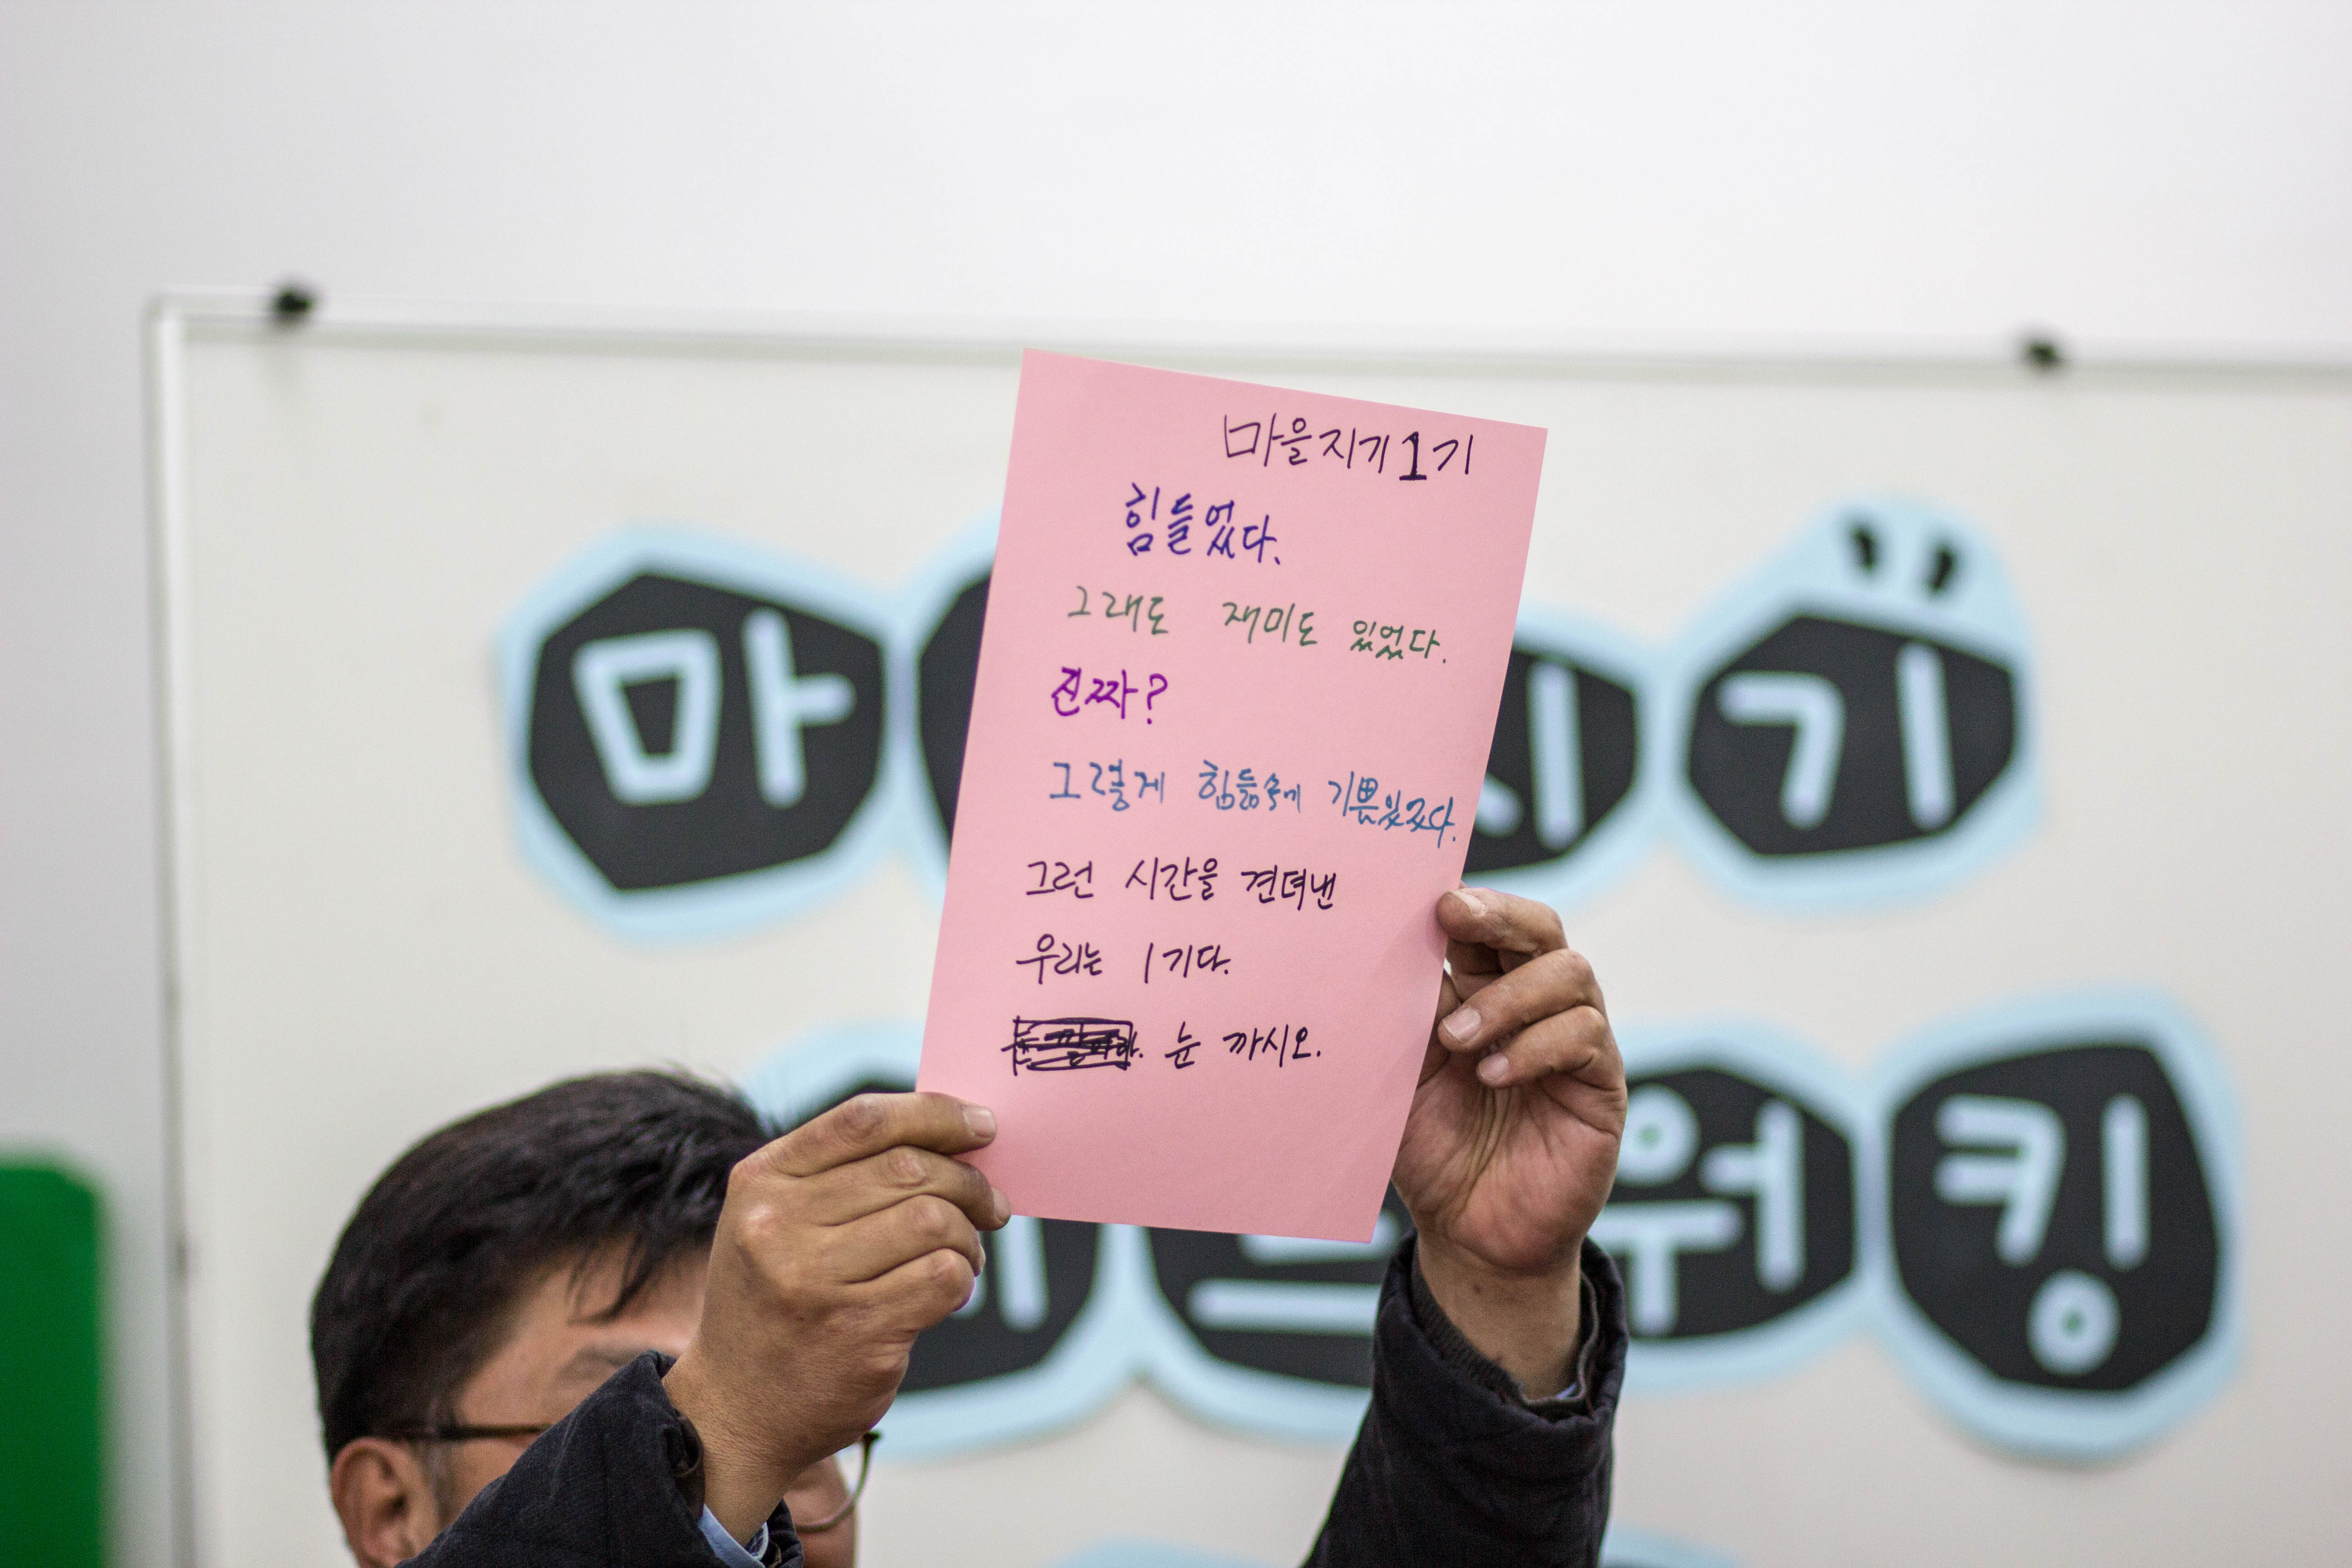 마을지기 1기
힘들었다.
그래도 재미도 있었다.
진짜?
그렇게 힘듦속에 기쁨있었다.
그런 시간을 견뎌낸
우리는 1기다.
눈 까시오.
마 지기
워킹